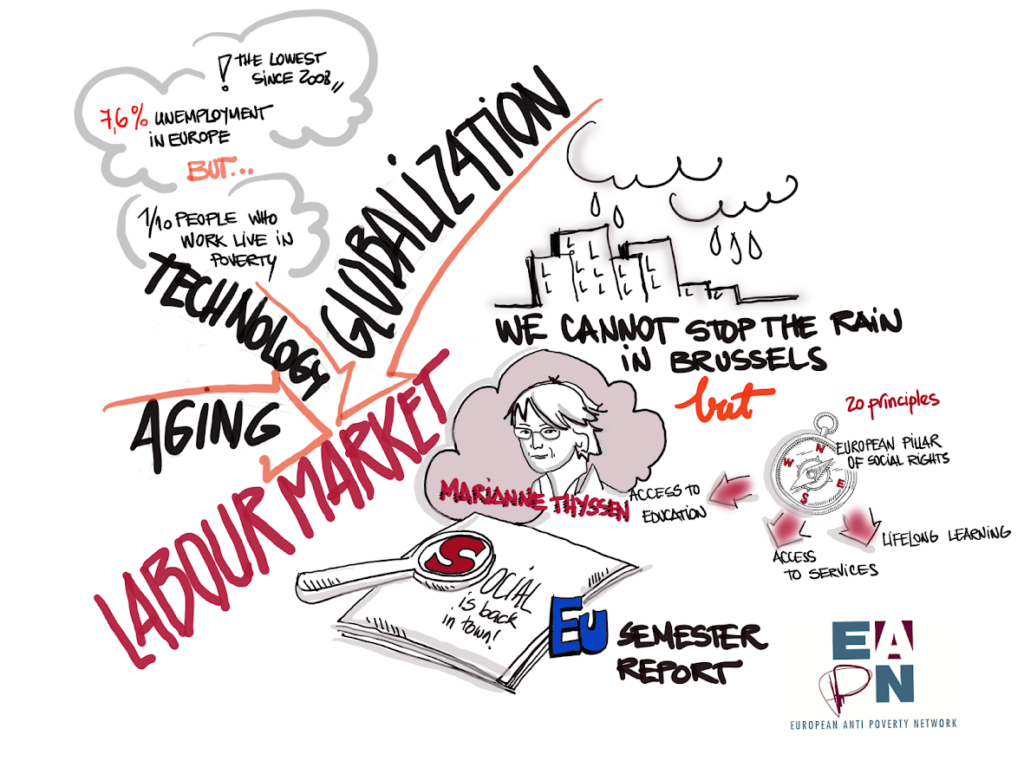 ! THE LOWEST
SINCE 2008 "
7,6% UNEMPLOYMENT
IN EUROPE
BUT...
1/10 PEOPLE WHO
WORK LIVE IN
POVERTY
TECHNOLOGY
GLOBALIZATION
AGING
LABOUR MARKET
WE CANNOT STOP THE RAIN
IN BRUSSELS
but
20 principles
EUROPEAN PILLAR
OF SOCIAL RIGHTS
N
W
E
S
MARIANNE THYSSEN
ACCESS TO
EDUCATION
ACCESS
TO SERVICES
LIFELONG LEARNING
SOCIAL
is back
in town!
EU SEMESTER
REPORT
EA
PN
EUROPEAN ANTI POVERTY NETWORK